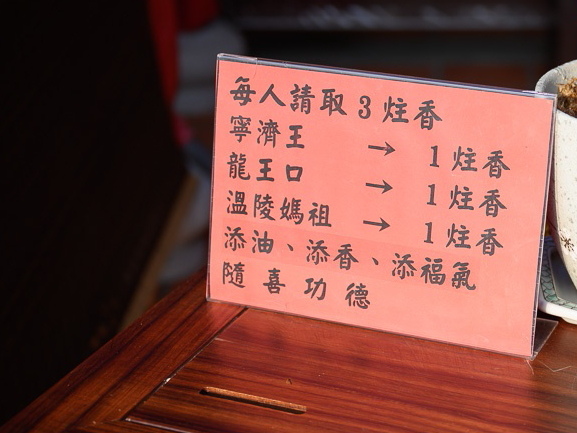 每人請取3炷香
寧濟王 → 1炷香
龍王口 → 1炷香
溫陵媽祖 → 1炷香
添油、添香、添福氣
隨喜功德